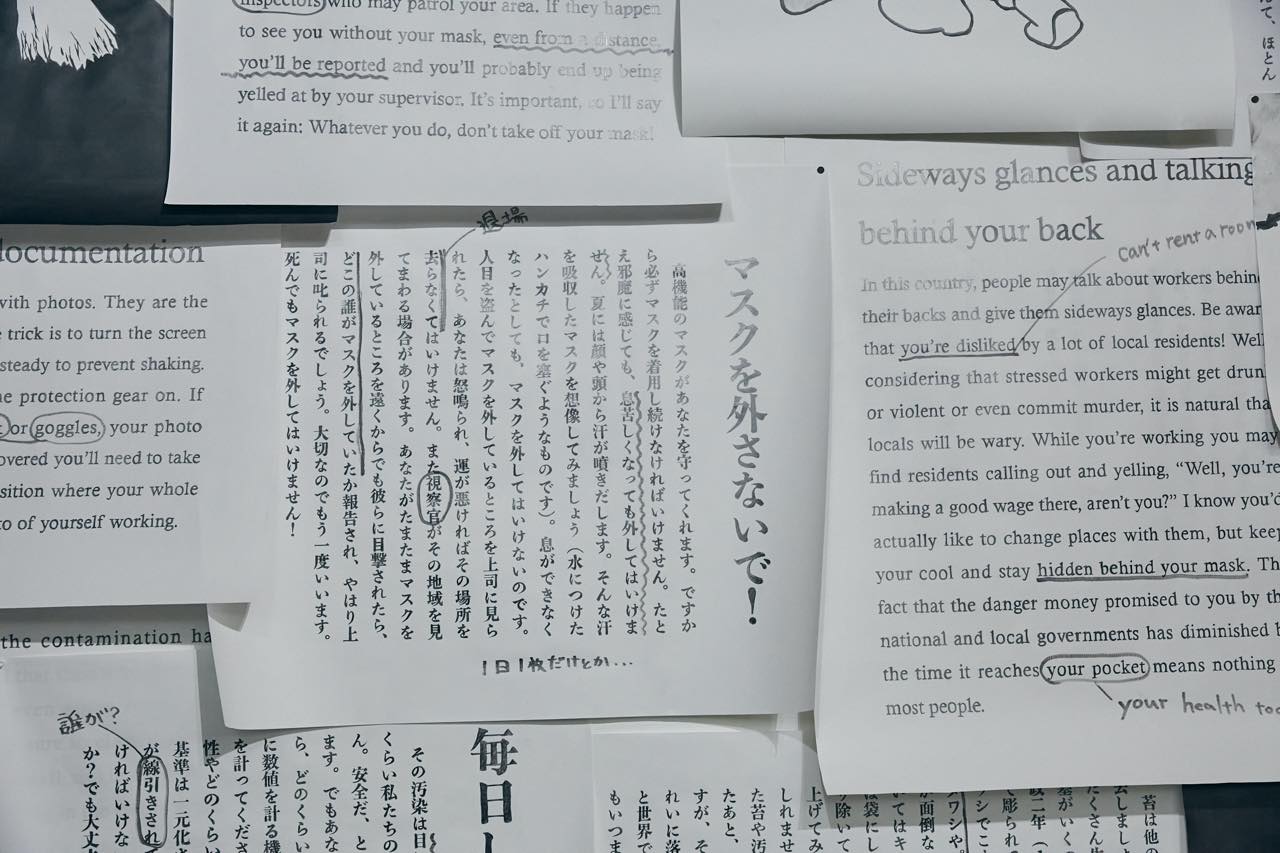 inspectors who may patrol your area. If they happen
to see you without your mask, even from a distance,
you'll be reported and you'll probably end up being
yelled at by your supervisor. It's important, so I'll say
it again: Whatever you do, don't take off your mask!
て、ほとん
ocumentation
with photos. They are the
trick is to turn the screen
steady to prevent shaking.
protection gear on. If
or goggles, your photo
overed you'll need to take
sition where your whole
to of yourself working.
the contamination ha
マスクを外さないで！
高機能のマスクがあなたを守ってくれます。ですか
ら必ずマスクを着用し続けなければいけません。たと
え邪魔に感じても、息苦しくなっても外してはいけま
せん。夏には顔や頭から汗が噴きだします。そんな汗
を吸収したマスクを想像してみましょう（水につけた
ハンカチで口を塞ぐようなものです）。息ができなく
なったとしても、マスクを外してはいけないのです。
人目を盗んでマスクを外しているところを上司に見ら
れたら、あなたは怒鳴られ、運が悪ければその場所を
去らなくてはいけません。また視察官がその地域を見
てまわる場合があります。あなたがたまたまマスクを
外しているところを遠くからでも彼らに目撃されたら、
どこの誰がマスクを外していたか報告され、やはり上
司に叱られるでしょう。大切なのでもう一度いいます。
死んでもマスクを外してはいけません！
退場
1日1枚だけとか…
Sideways glances and talking
behind your back
can't rent a room
In this country, people may talk about workers behin
their backs and give them sideways glances. Be awar
that you're disliked by a lot of local residents! Well
considering that stressed workers might get drun
or violent or even commit murder, it is natural tha
locals will be wary. While you're working you may
find residents calling out and yelling, "Well, you're
making a good wage there, aren't you?" I know you'd
actually like to change places with them, but keep
your cool and stay hidden behind your mask. Th
fact that the danger money promised to you by th
national and local governments has diminished b
the time it reaches your pocket means nothing
most people.
your health too
誰が？
毎日
その汚染は目
くらい私たちの
ん。安全だ、と
ます。でもあな
ら、どのくらい
に数値を計る機
を計ってくださ
性やどのくらい
基準は一元化さ
が線引きされ
ければいけな
か？でも大丈夫
苔は他の
しれませ
た苔や汚
たあと、
すが、そ
れいに落
と世界で
もいつま